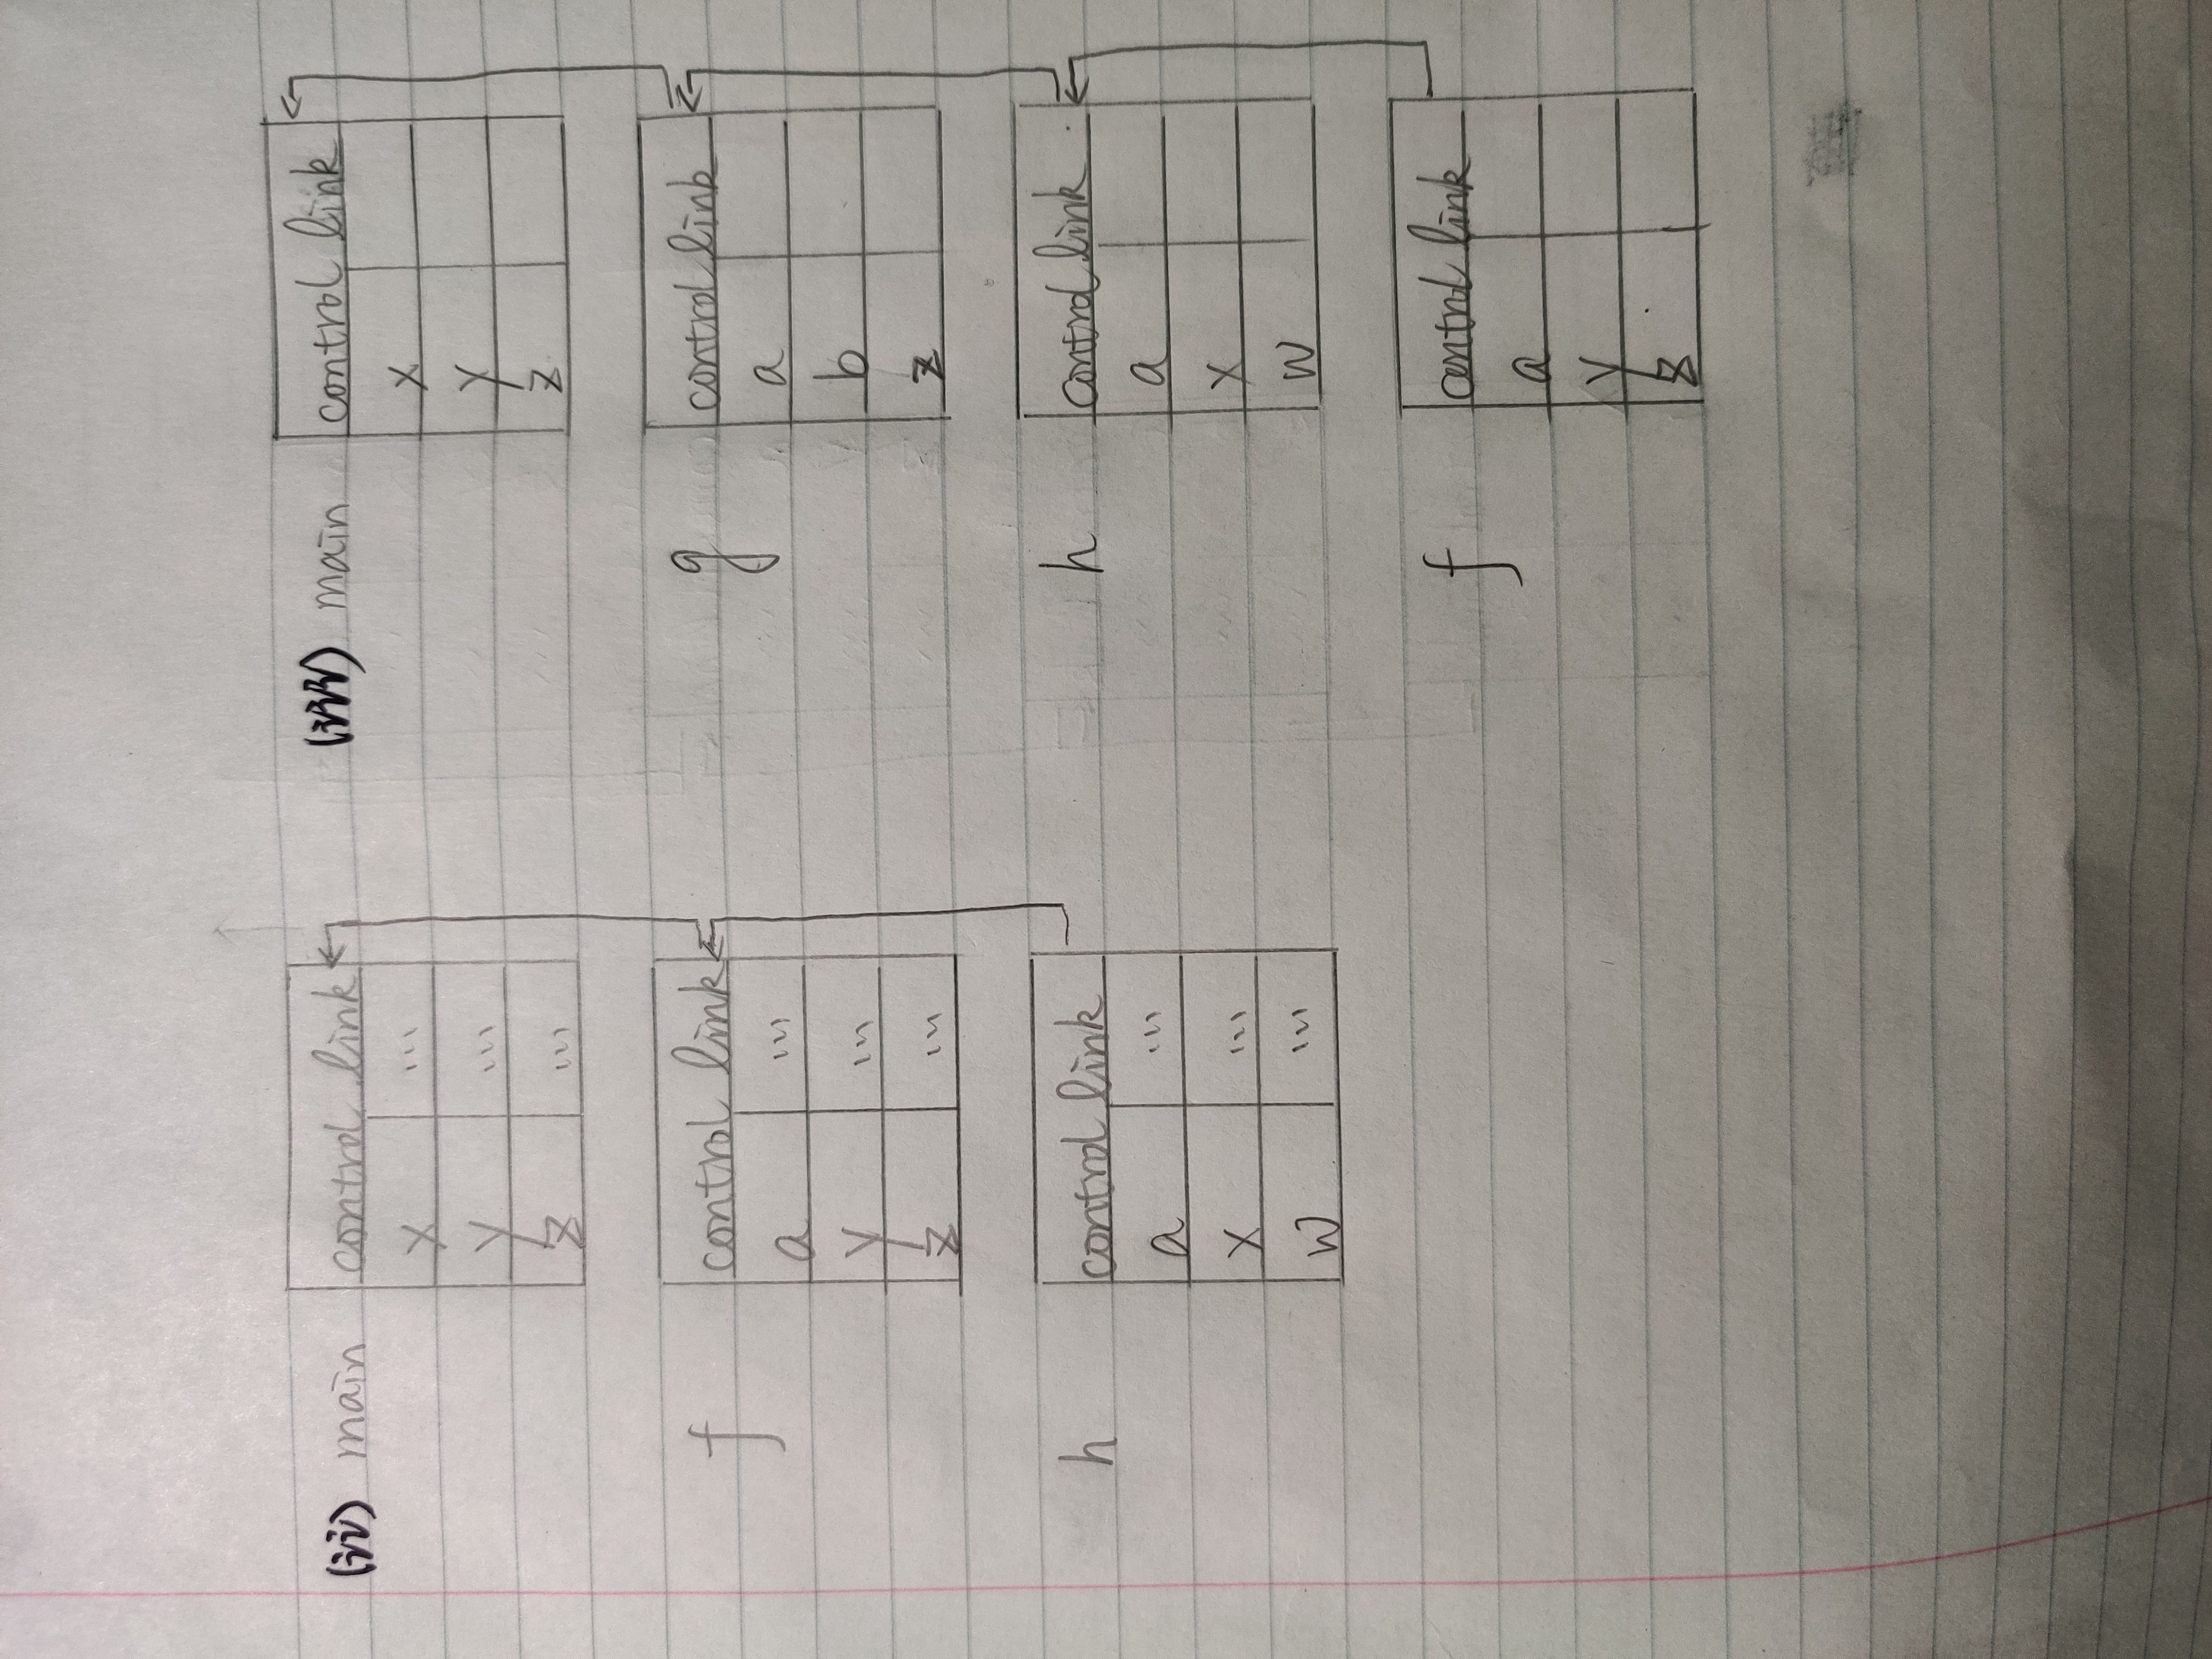 (ii) main control link
x ...
y ...
z ...
f control link
a ...
y ...
z ...
h control link
a ...
x ...
w ...
(iii) main control link
x
y
z
g control link
a
b
z
h control link
a
x
w
f control link
a
y
z